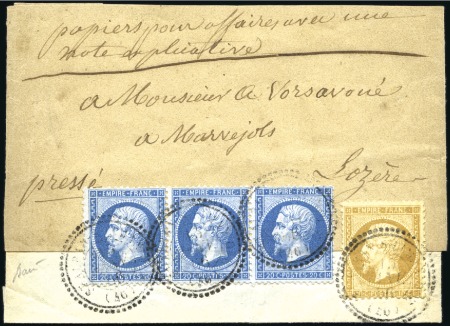 papiers pour affaires avec une
note explicative
a Monsieur A Vorsavoué
a Marvejols
pressé
Lozère
EMPIRE FRANC EMPIRE FRANC EMPIRE FRANC EMPIRE FRANC
20 C POSTES 20 C 20 C POSTES 20 C 20 C POSTES 20 C
(46)